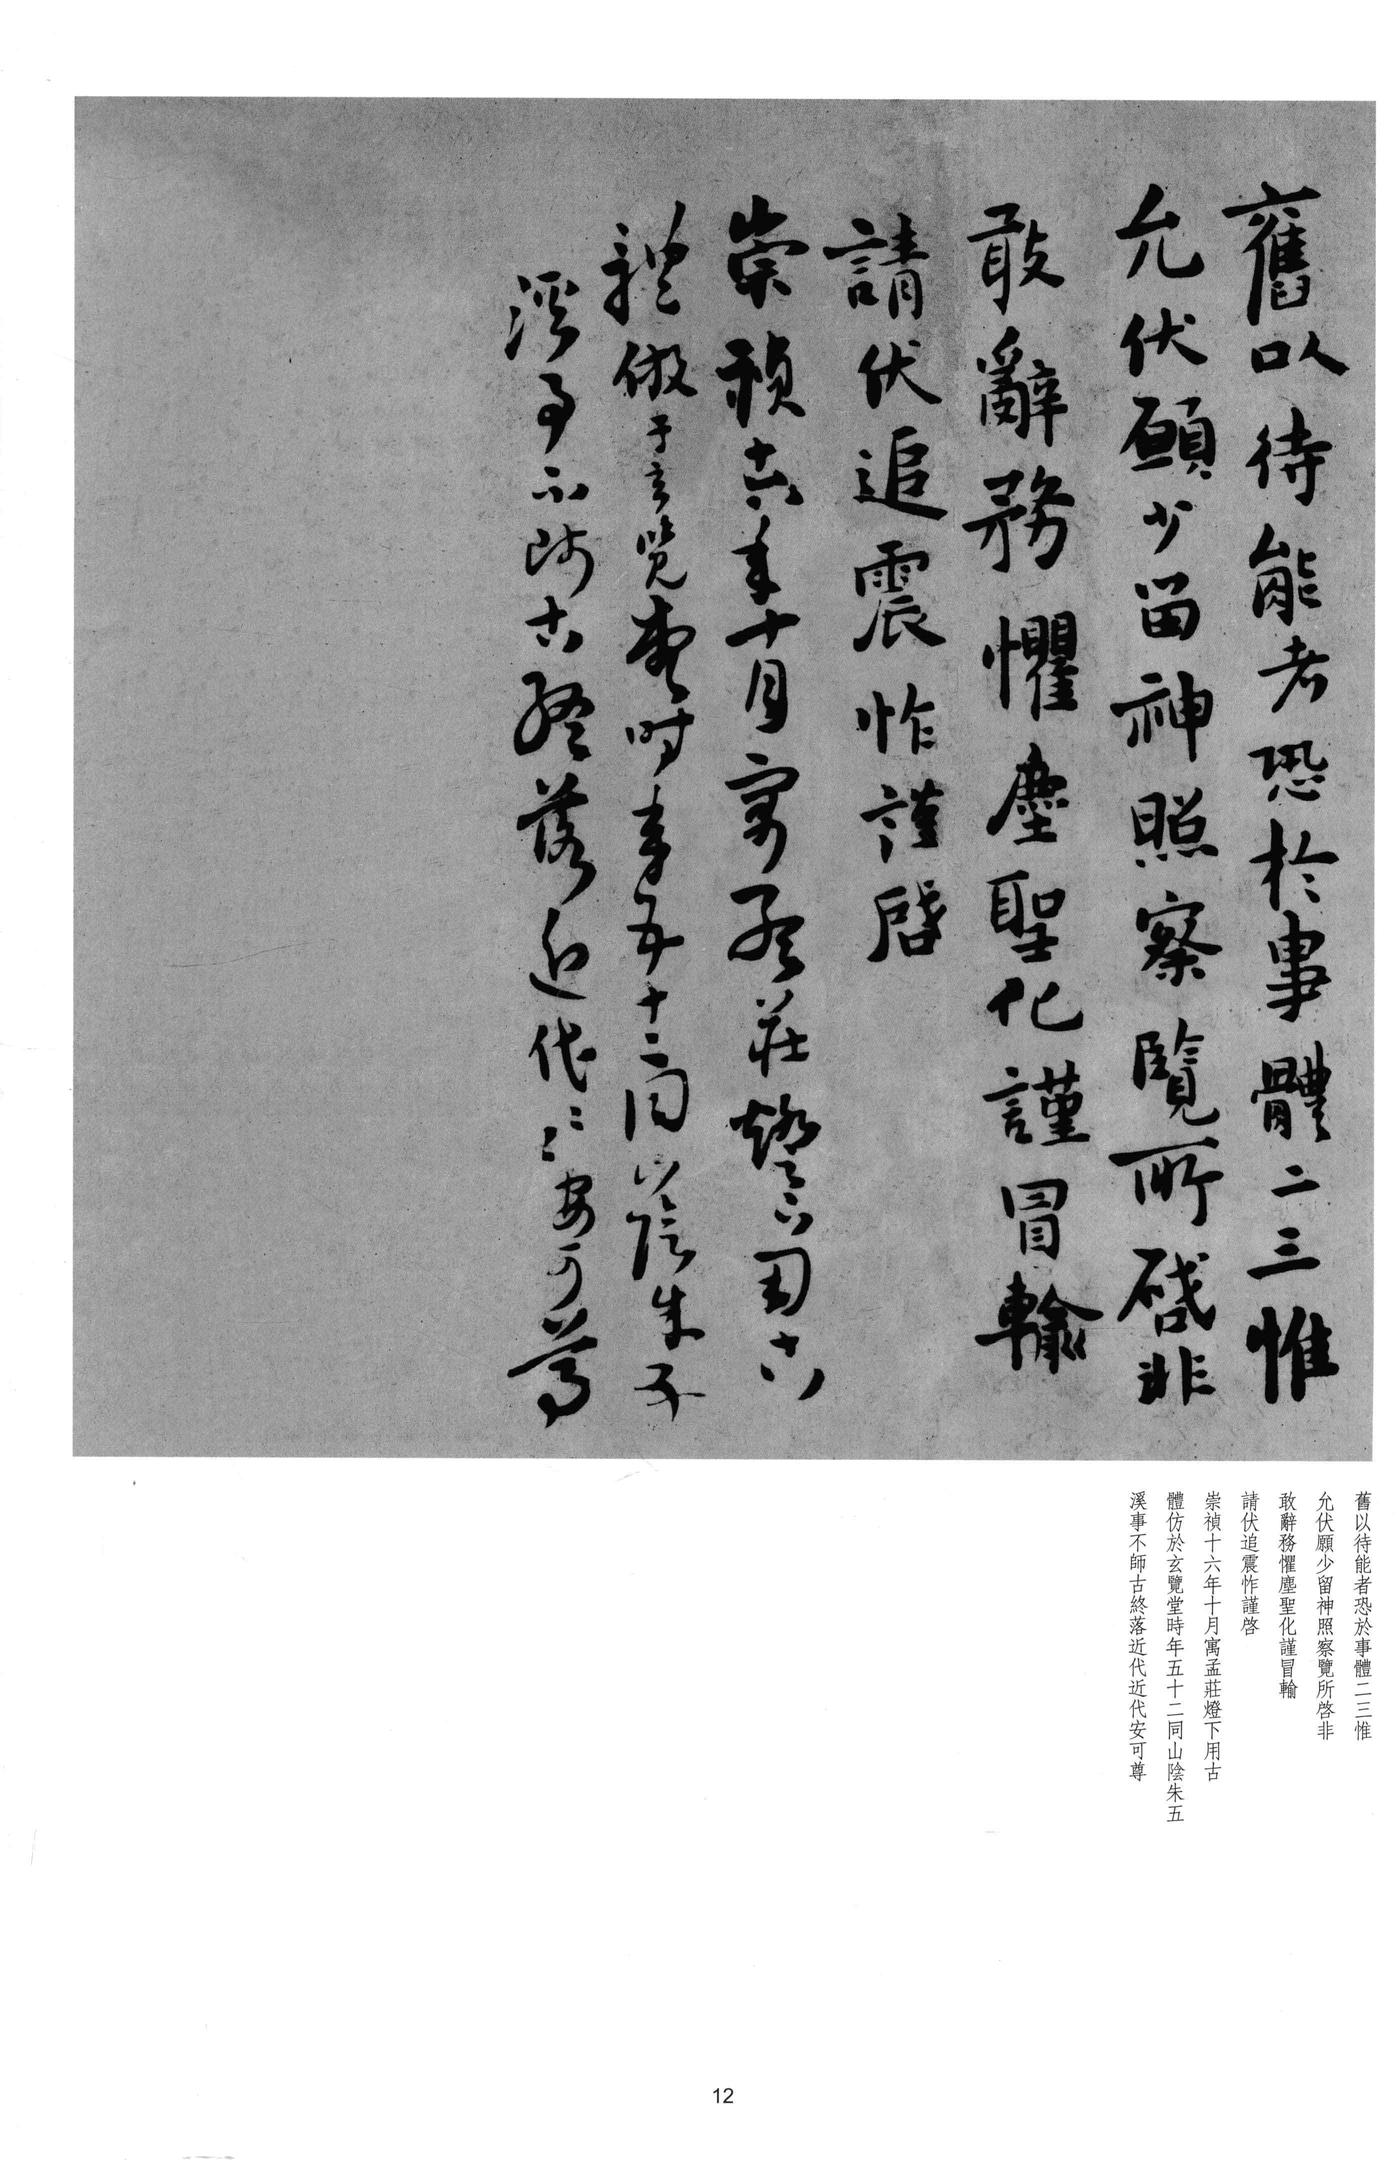 舊以待能者恐於事體二三惟
允伏願少留神照察覽所啓非
敢辭務懼塵聖化謹冒輸
請伏追震怍謹啓
崇禎十六年十月寓孟莊燈下用古
體仿于玄覽堂時年五十二同山陰朱五
溪事不師古終落近代〻〻安可尊
舊以待能者恐於事體二三惟
允伏願少留神照察覽所啓非
敢辭務懼塵聖化謹冒輸
請伏追震怍謹啓
崇禎十六年十月寓孟莊燈下用古
體仿於玄覽堂時年五十二同山陰朱五
溪事不師古終落近代近代安可尊
12